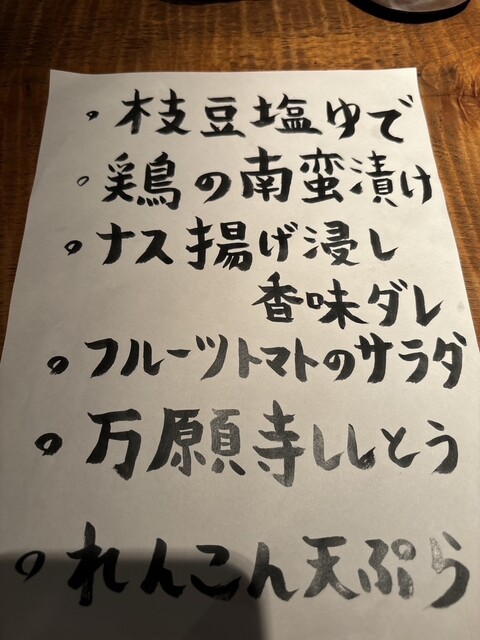 。枝豆塩ゆで
。鶏の南蛮漬け
。ナス揚げ浸し
香味ダレ
。フルーツトマトのサラダ
。万願寺ししとう
。れんこん天ぷら